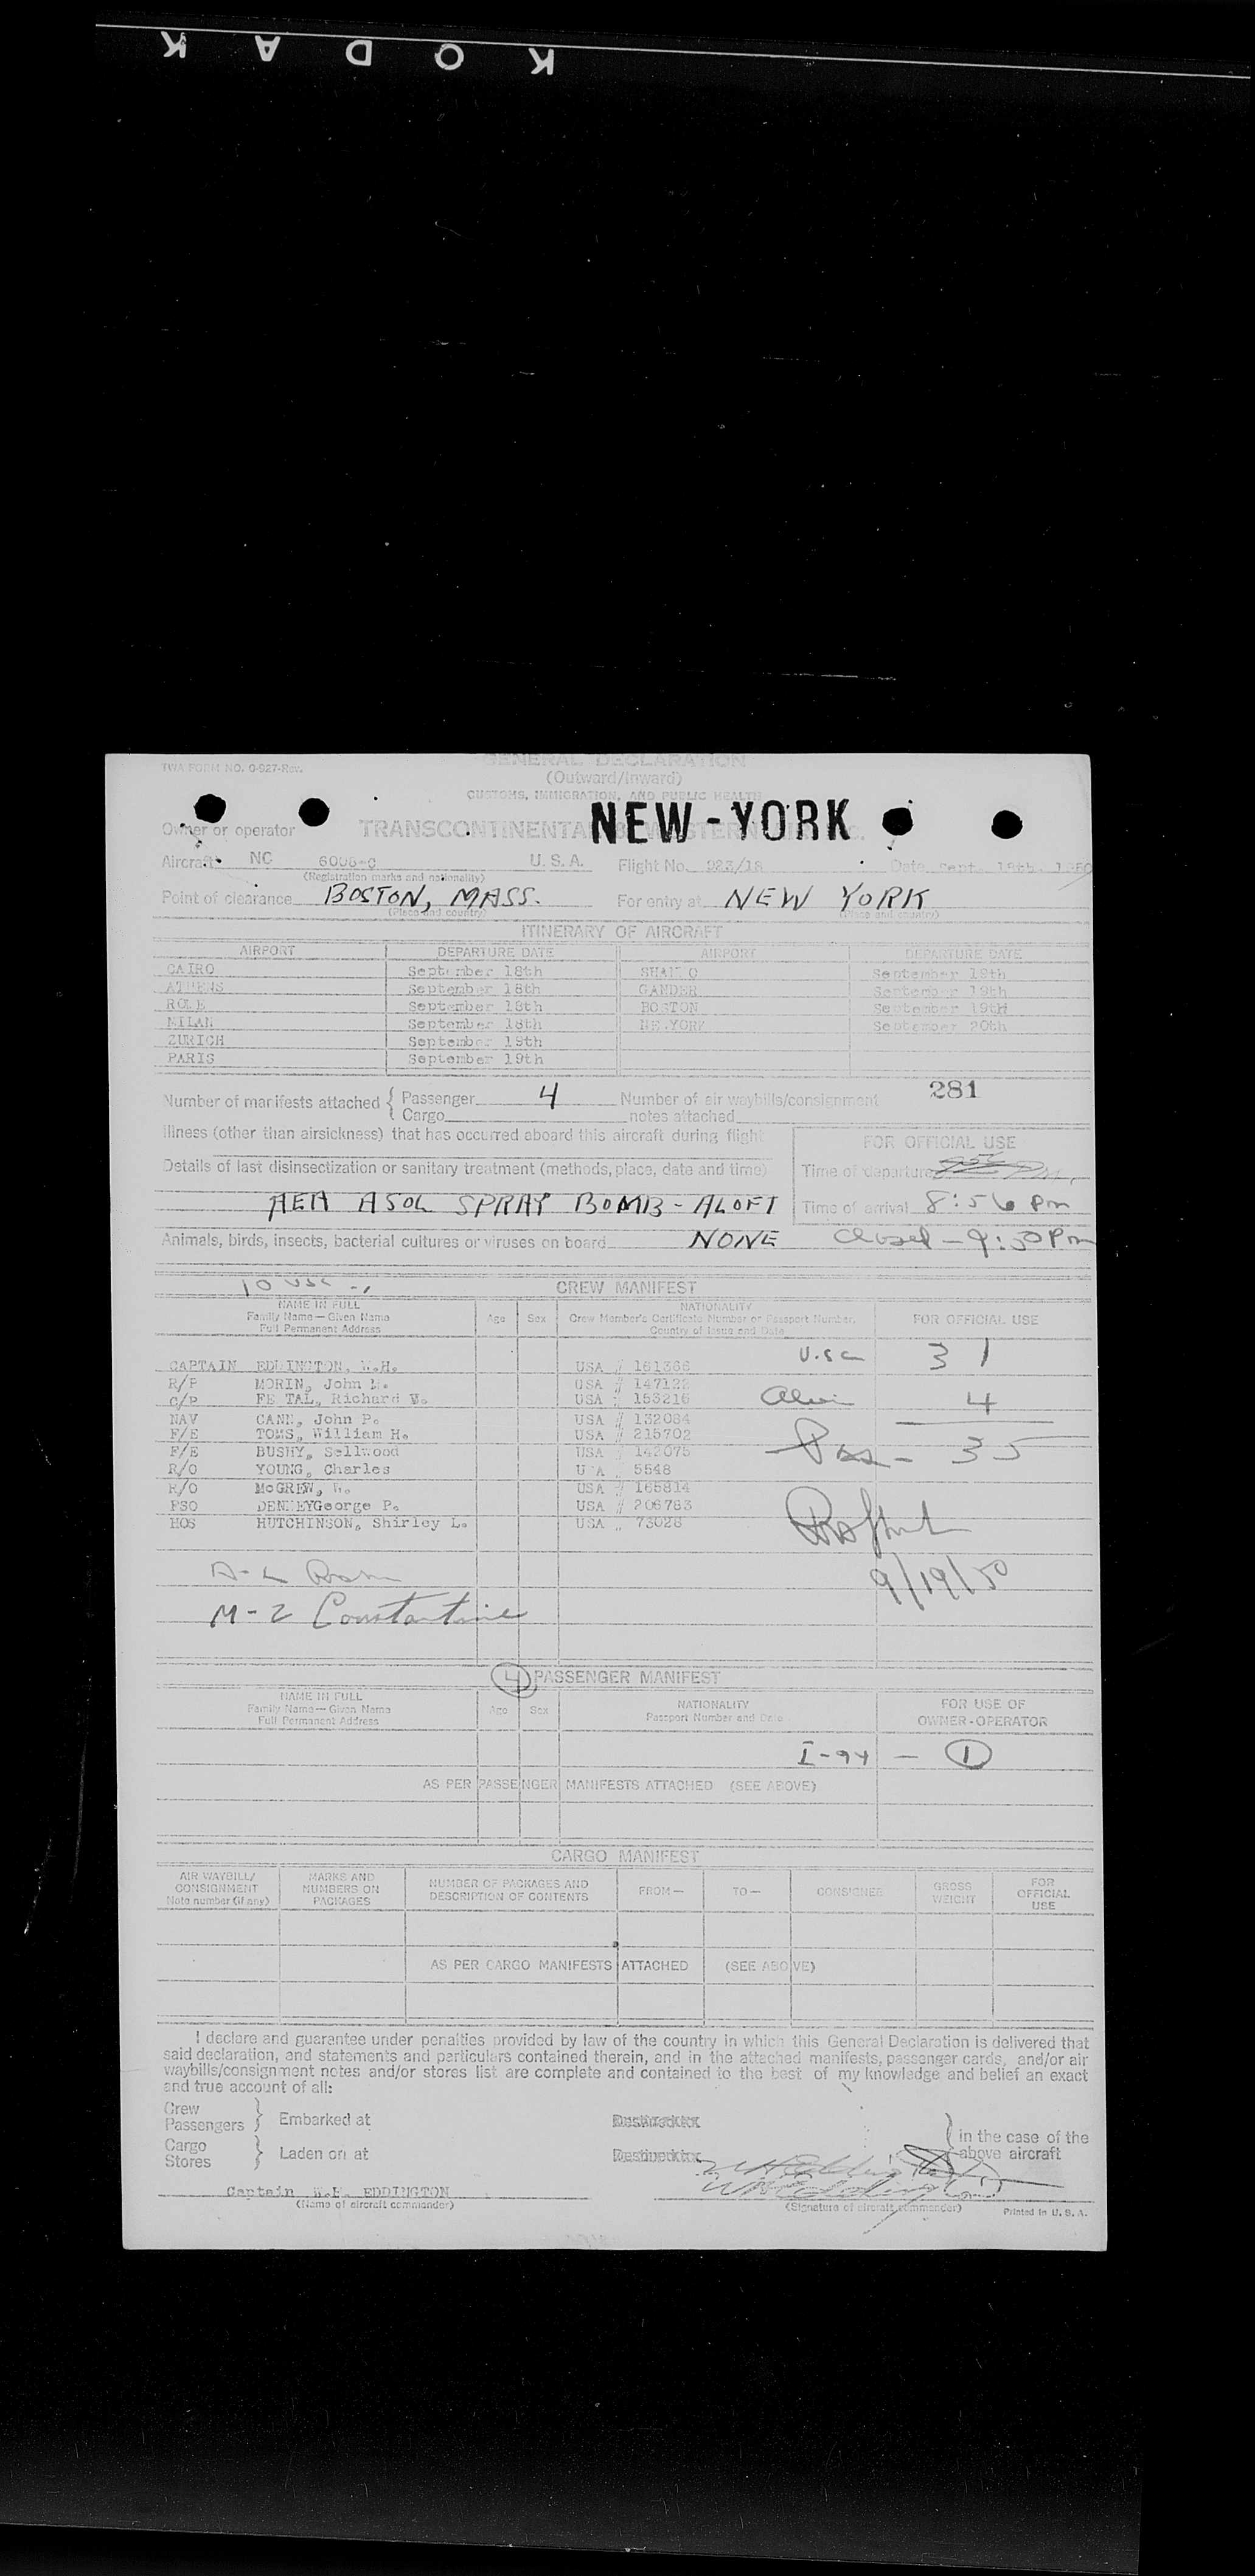 KODAK
TWA FORM NO. 0-927-Rev.
GENERAL DECLARATION
(Outward/Inward)
CUSTOMS, IMMIGRATION, AND PUBLIC HEALTH
NEW-YORK
Owner or operator TRANSCONTINENTAL & WESTERN AIR, INC.
Aircraft NC 6006-C U. S. A. Flight No. 923/18 Date Sept. 19th, 1950
(Registration marks and nationality)
Point of clearance BOSTON, MASS. For entry at NEW YORK
(Place and country) (Place and country)
ITINERARY OF AIRCRAFT
AIRPORT DEPARTURE DATE AIRPORT DEPARTURE DATE
CAIRO September 18th SHANNO September 19th
ATHENS September 18th GANDER September 19th
ROME September 18th BOSTON September 19tH
MILAN September 18th NEWYORK September 20th
ZURICH September 19th
PARIS September 19th
281
Number of manifests attached { Passenger 4 Number of air waybills/consignment
Cargo notes attached
Illness (other than airsickness) that has occurred aboard this aircraft during flight
FOR OFFICIAL USE
Details of last disinsectization or sanitary treatment (methods, place, date and time)
Time of departure
AEA ASOL SPRAY BOMB - ALOFT
Time of arrival 8:56 Pm
Animals, birds, insects, bacterial cultures or viruses on board NONE
Closed - 9:30 Pm
10 USC
CREW MANIFEST
NAME IN FULL
Family Name — Given Name
Full Permanent Address
Age Sex
NATIONALITY
Crew Member's Certificate Number or Passport Number,
Country of Issue and Date
FOR OFFICIAL USE
U.S.C 31
CAPTAIN EDDINGTON, W.H. USA # 161366
R/P MORIN, John M. USA # 147122
C/P Richard USA 153216
Alien 4
NAV CANN, John P. USA # 132084
F/E TOMS, William H. USA # 215702
F/E BUSHY, Sellwood USA 142075
Pax - 35
R/O YOUNG, Charles USA 5548
R/O McGREW, W. USA # 165814
PSO DENNEYGeorge P. USA # 206783
HOS HUTCHINSON, Shirley L. USA 73028
9/19/50
M-2 Constantine
4 PASSENGER MANIFEST
NAME IN FULL
Family Name — Given Name
Full Permanent Address
Age Sex
NATIONALITY
Passport Number and Date
FOR USE OF
OWNER-OPERATOR
I-94 — 1
AS PER PASSENGER MANIFESTS ATTACHED (SEE ABOVE)
CARGO MANIFEST
AIR WAYBILL/
CONSIGNMENT
Note number (if any)
MARKS AND
NUMBERS ON
PACKAGES
NUMBER OF PACKAGES AND
DESCRIPTION OF CONTENTS
FROM—
TO—
CONSIGNEE
GROSS
WEIGHT
FOR
OFFICIAL
USE
AS PER CARGO MANIFESTS ATTACHED (SEE ABOVE)
I declare and guarantee under penalties provided by law of the country in which this General Declaration is delivered that
said declaration, and statements and particulars contained therein, and in the attached manifests, passenger cards, and/or air
waybills/consignment notes and/or stores list are complete and contained to the best of my knowledge and belief an exact
and true account of all:
Crew
Passengers } Embarked at
Cargo
Stores } Laden on at
} in the case of the
above aircraft
Captain W.H. EDDINGTON
(Name of aircraft commander)
WHEddington
(Signature of aircraft commander)
Printed in U. S. A.